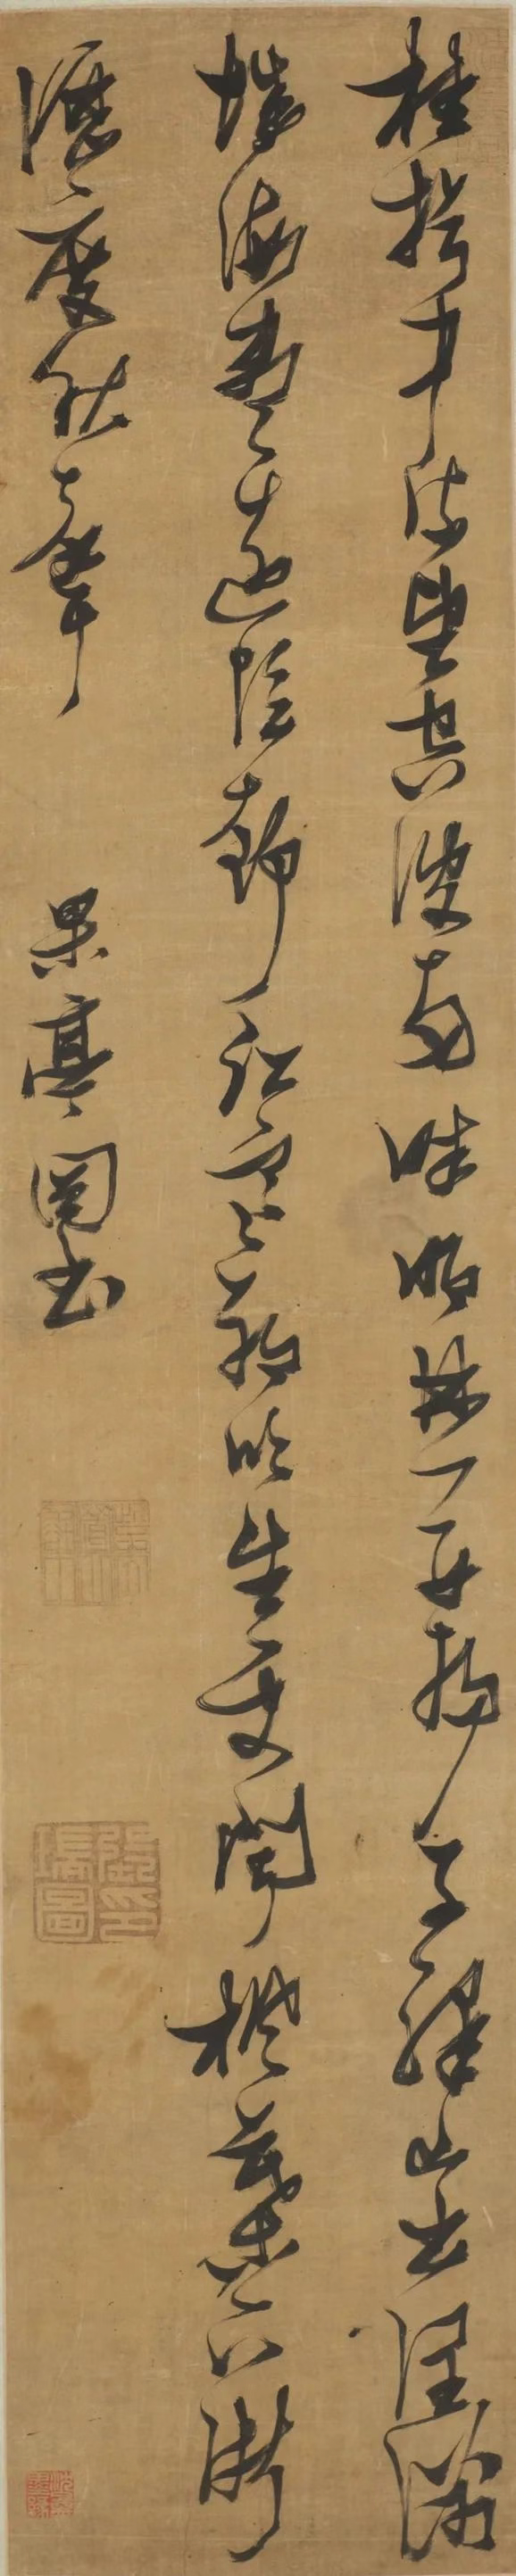 桂楫中流望空波兩畔明林開揚子驛山出潤州
城海盡邊陰靜江寒朔吹生更聞楓葉下淅
瀝度秋聲 果亭圖書
張瑞圖印